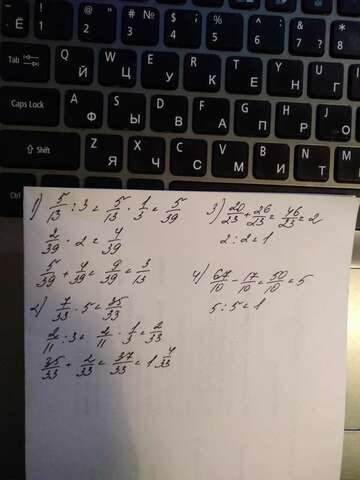 Ё ! 1 " 2 № 3 ; 4 % 5 : 6 ? 7 * 8
Tab Q Й W Ц E У R К T Е Y Н U Г
Caps Lock A Ф S Ы D В F А G П H Р J О
Shift Z Я X Ч C С V М B И N Т
Ctrl
1) 5/13 : 3 = 5/13 · 1/3 = 5/39
2/39 · 2 = 4/39
5/39 + 4/39 = 9/39 = 3/13
2) 7/33 · 5 = 35/33
2/11 : 3 = 2/11 · 1/3 = 2/33
35/33 + 2/33 = 37/33 = 1 4/33
3) 20/23 + 26/23 = 46/23 = 2
2 : 2 = 1
4) 67/10 - 17/10 = 50/10 = 5
5 : 5 = 1